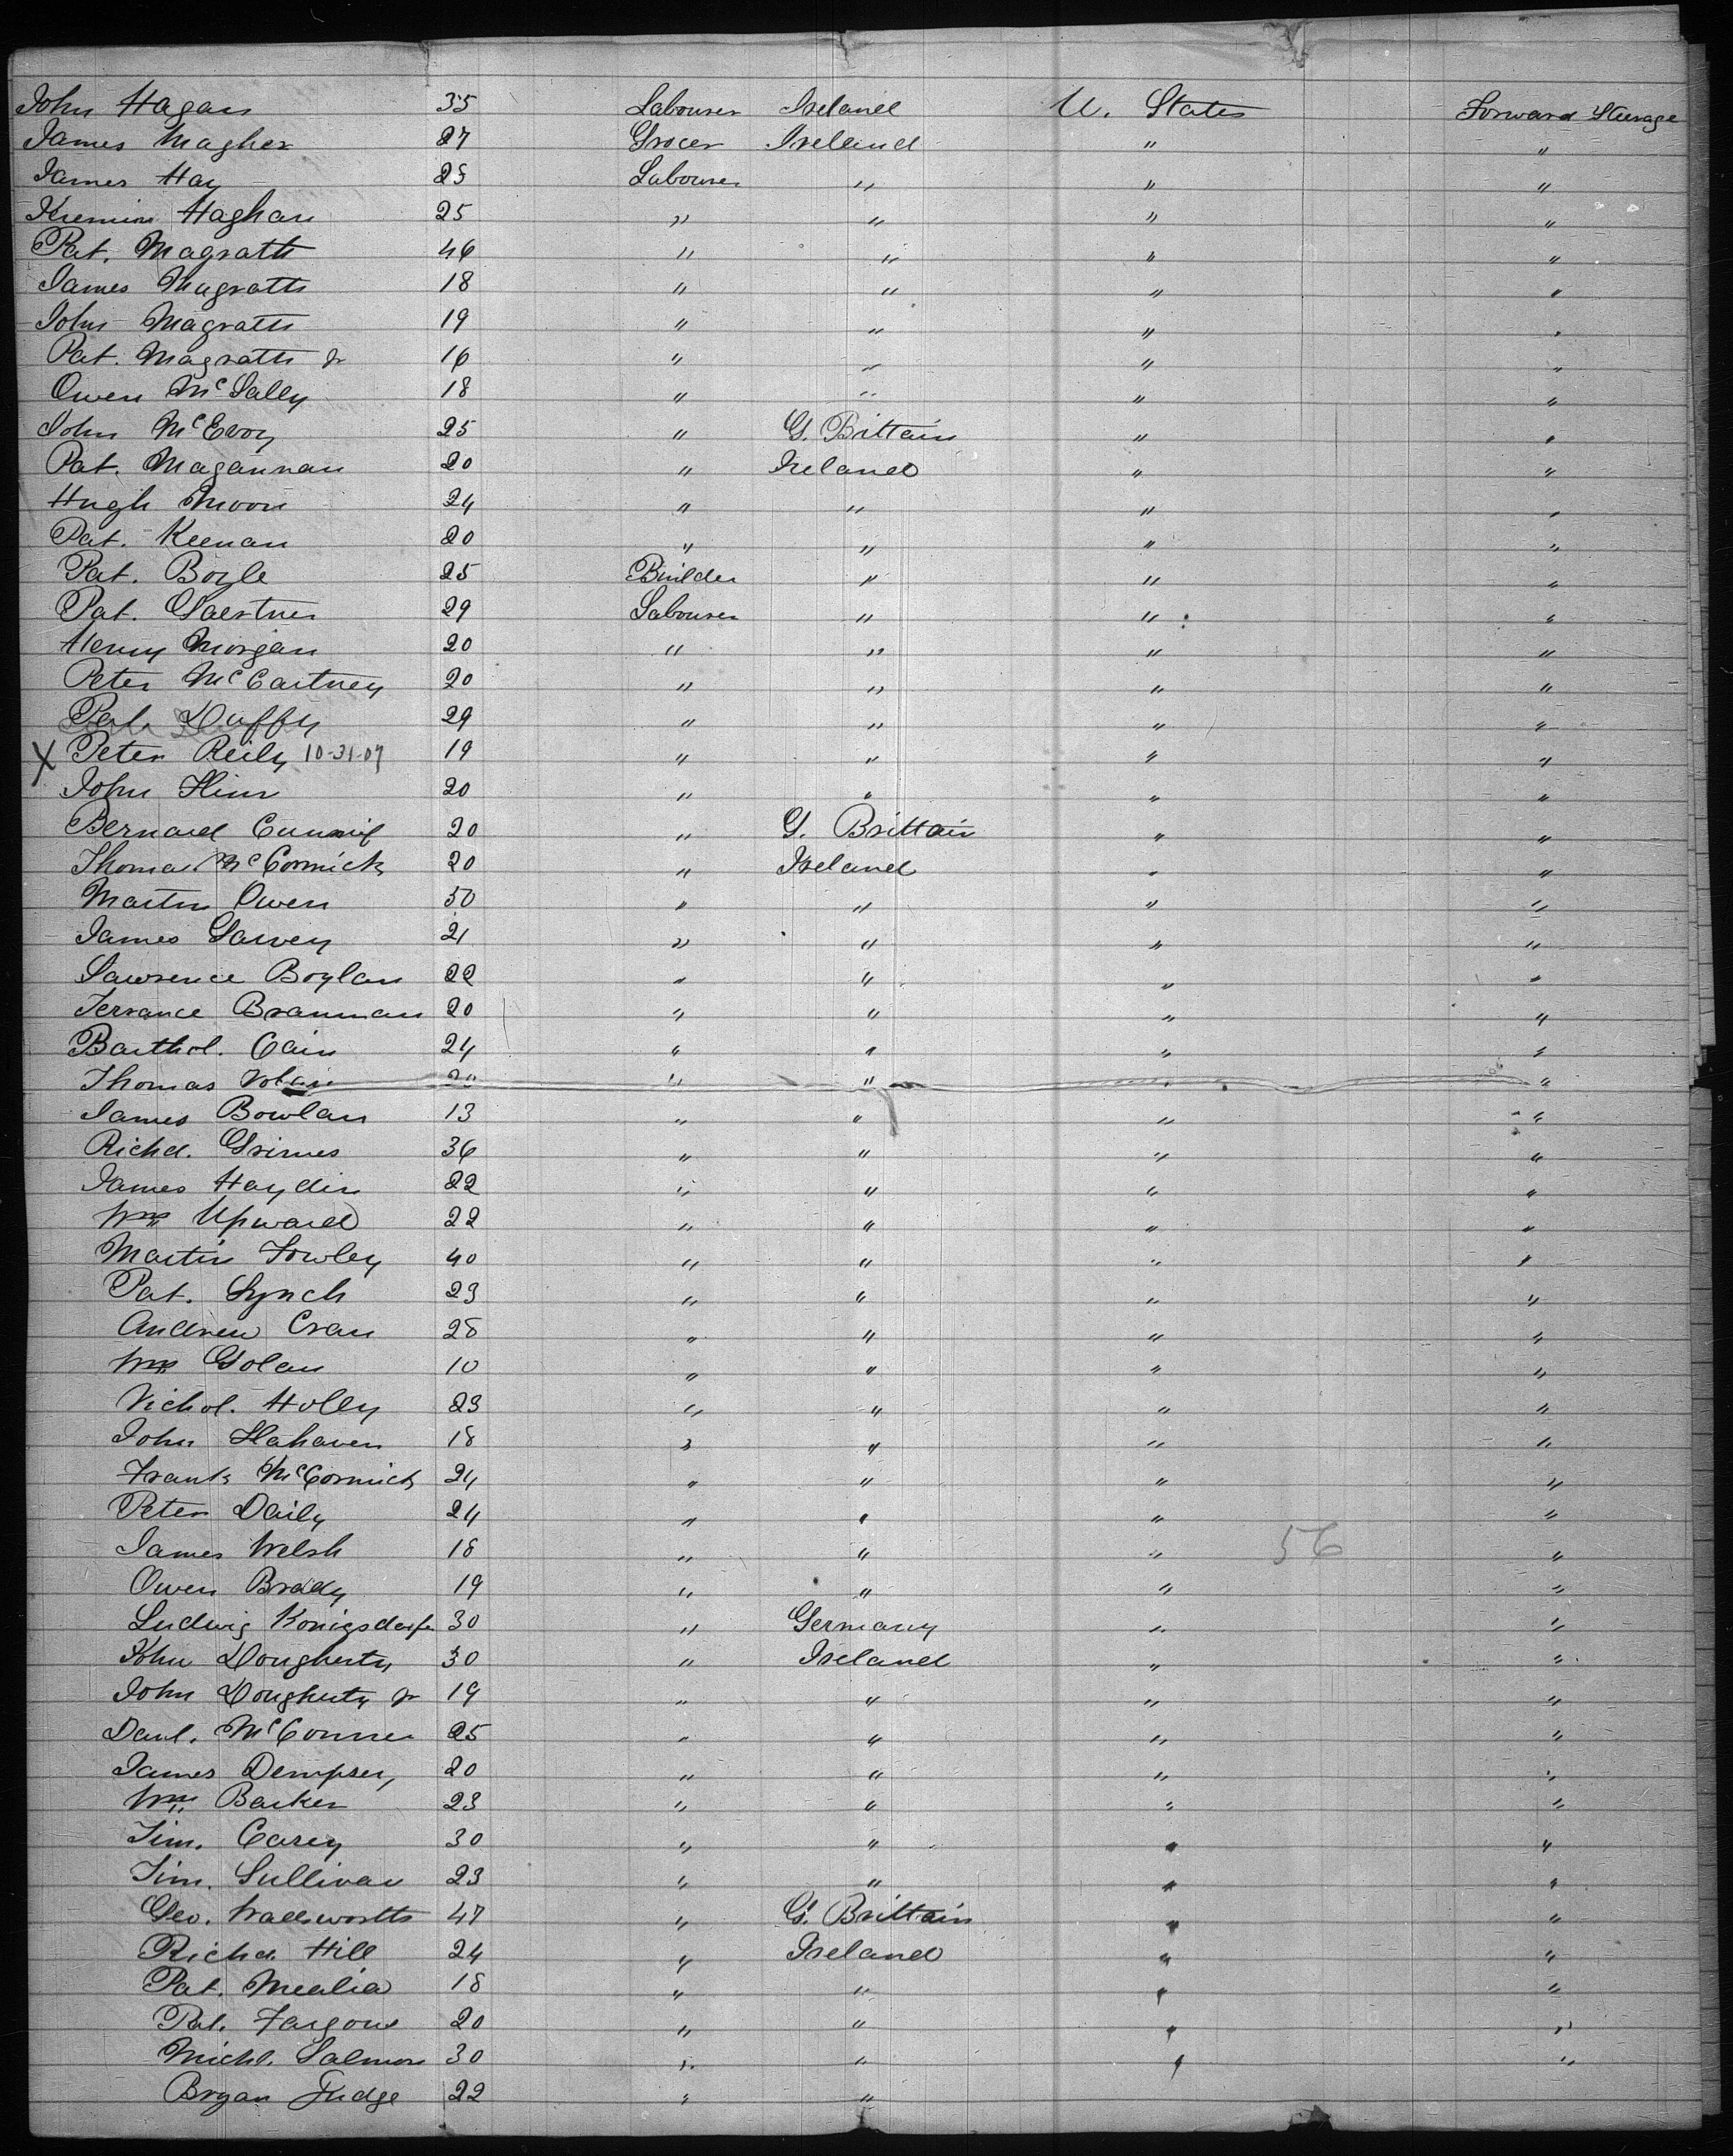 John Hagan 35 Labourer Ireland U. States Forward Steerage
James Magher 27 Grocer Ireland " "
James Hay 25 Labourer " " "
Haghan 25 " " " "
Pat. Magrath 46 " " " "
James Magrath 18 " " " "
John Magrath 19 " " " "
Pat. Magrath Jr 16 " " " "
Owen McLally 18 " " " "
John McEvoy 25 " G. Brittain " "
Pat. Magannan 20 " Ireland " "
Hugh Moon 24 " " " "
Pat. Keenan 20 " " " "
Pat. Boyle 25 Builder " " "
Pat. 29 Labourer " " "
Henry Morgan 20 " " " "
Peter McCartney 20 " " " "
Pat. Duffy 29 " " " "
X Peter Reily 10-31-07 19 " " " "
John 20 " " " "
Bernard Cunnif 20 " G. Brittain " "
Thomas McCormick 20 " Ireland " "
Martin Owen 50 " " " "
James Garvey 21 " " " "
Lawrence Boylan 22 " " " "
Terrance Brannan 20 " " " "
Barthol. Cain 24 " " " "
Thomas " " " "
James Bowlan 13 " " " "
Richd. Grimes 36 " " " "
James Haydin 22 " " " "
Wm Upward 22 " " " "
Martin Fowley 40 " " " "
Pat. Lynch 23 " " " "
Andrew Cran 28 " " " "
Wm Golan 10 " " " "
Nichol. Holly 23 " " " "
John Flahaven 18 " " " "
Frank McCormick 24 " " " "
Peter Daily 24 " " " "
James Welsh 18 " " " " 56
Owen Brady 19 " " " "
Ludwig Konigsdorfer 30 " Germany " "
John Dougherty 30 " Ireland " "
John Dougherty Jr 19 " " " "
Danl. McConner 25 " " " "
James Dempsey 20 " " " "
Wm Barker 23 " " " "
Tim. Carey 30 " " " "
Tim. Sullivan 23 " " " "
Geo. Wadsworth 47 " G. Brittain " "
Richd. Hill 24 " Ireland " "
Pat. Mealia 18 " " " "
Pat. 20 " " " "
Michl. Salmon 30 " " " "
Bryan Judge 22 " "